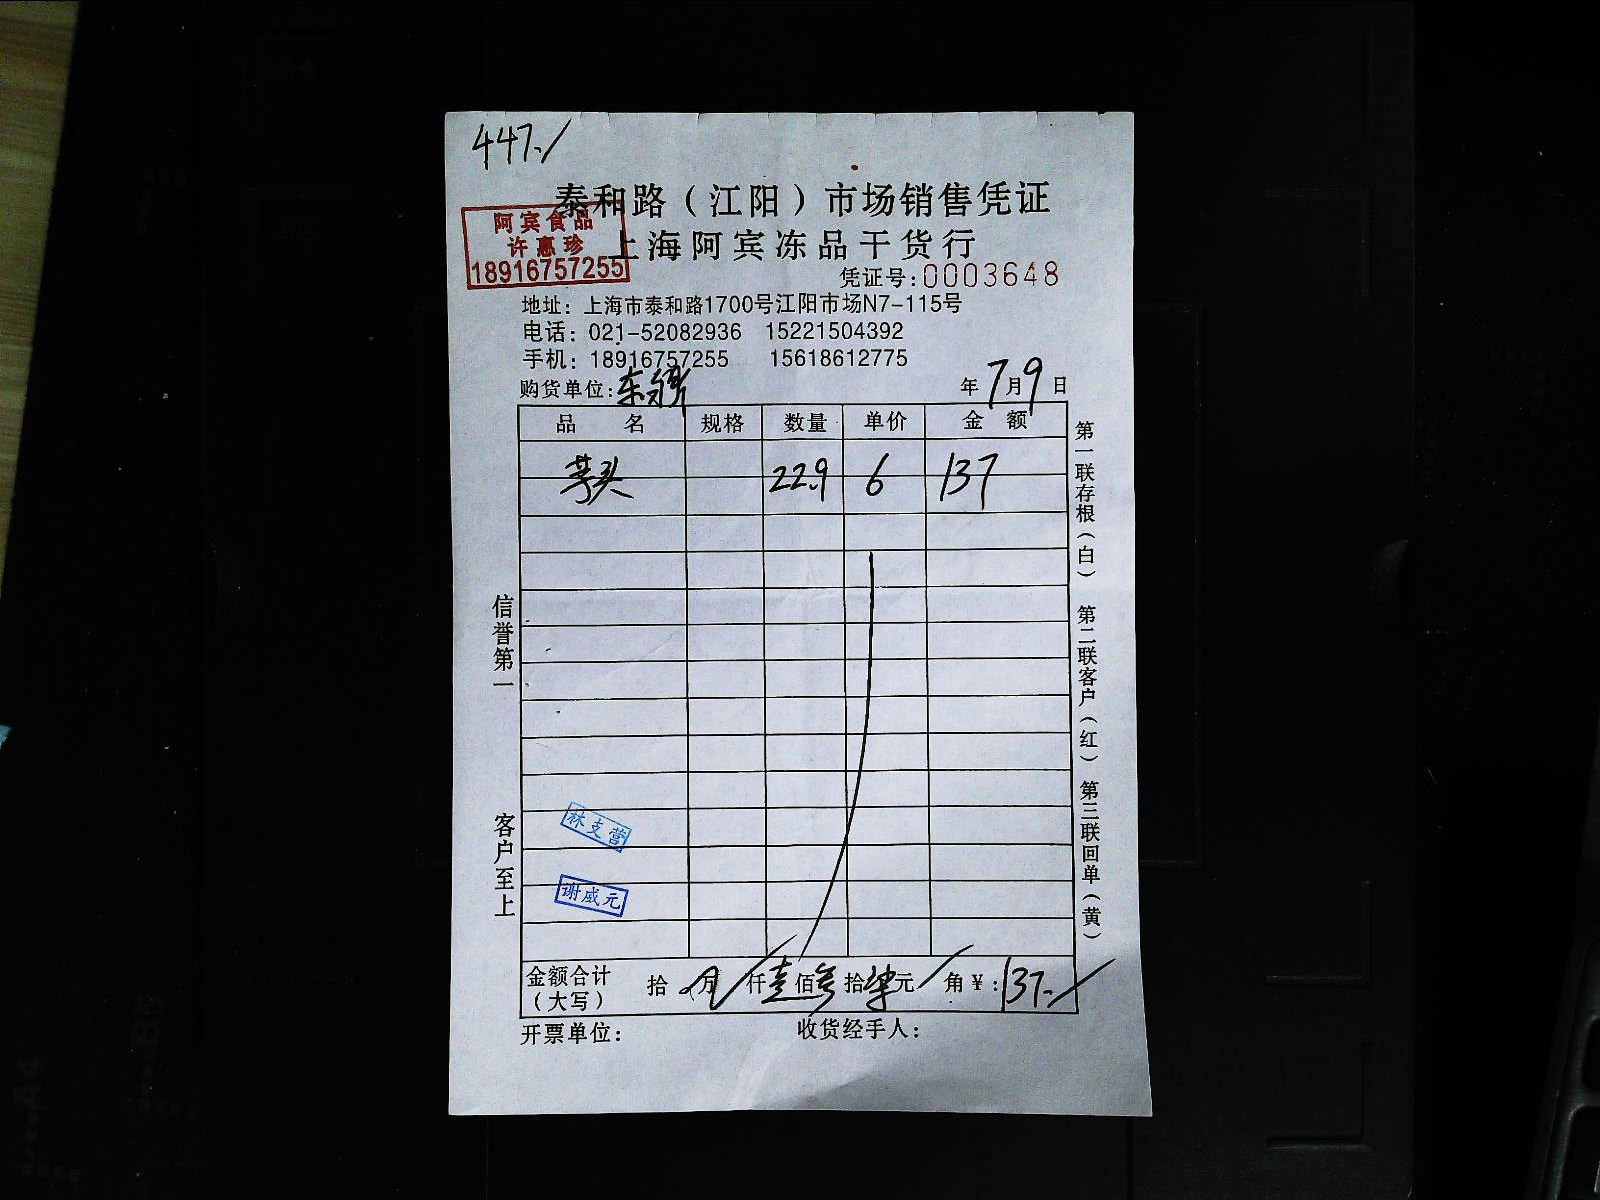 447./
泰和路（江阳）市场销售凭证
阿宾食品
许惠珍
18916757255
上海阿宾冻品干货行
凭证号:0003648
地址：上海市泰和路1700号江阳市场N7-115号
电话：021-52082936 15221504392
手机：18916757255 15618612775
购货单位: 年7月9日
品 名 规格 数量 单价 金 额
芋头 22.9 6 137
第一联存根（白） 第二联客户（红） 第三联回单（黄）
信誉第一 客户至上
林支营
谢威元
金额合计（大写） 拾 万 仟壹佰叁拾柒元 角￥:137./
开票单位： 收货经手人：